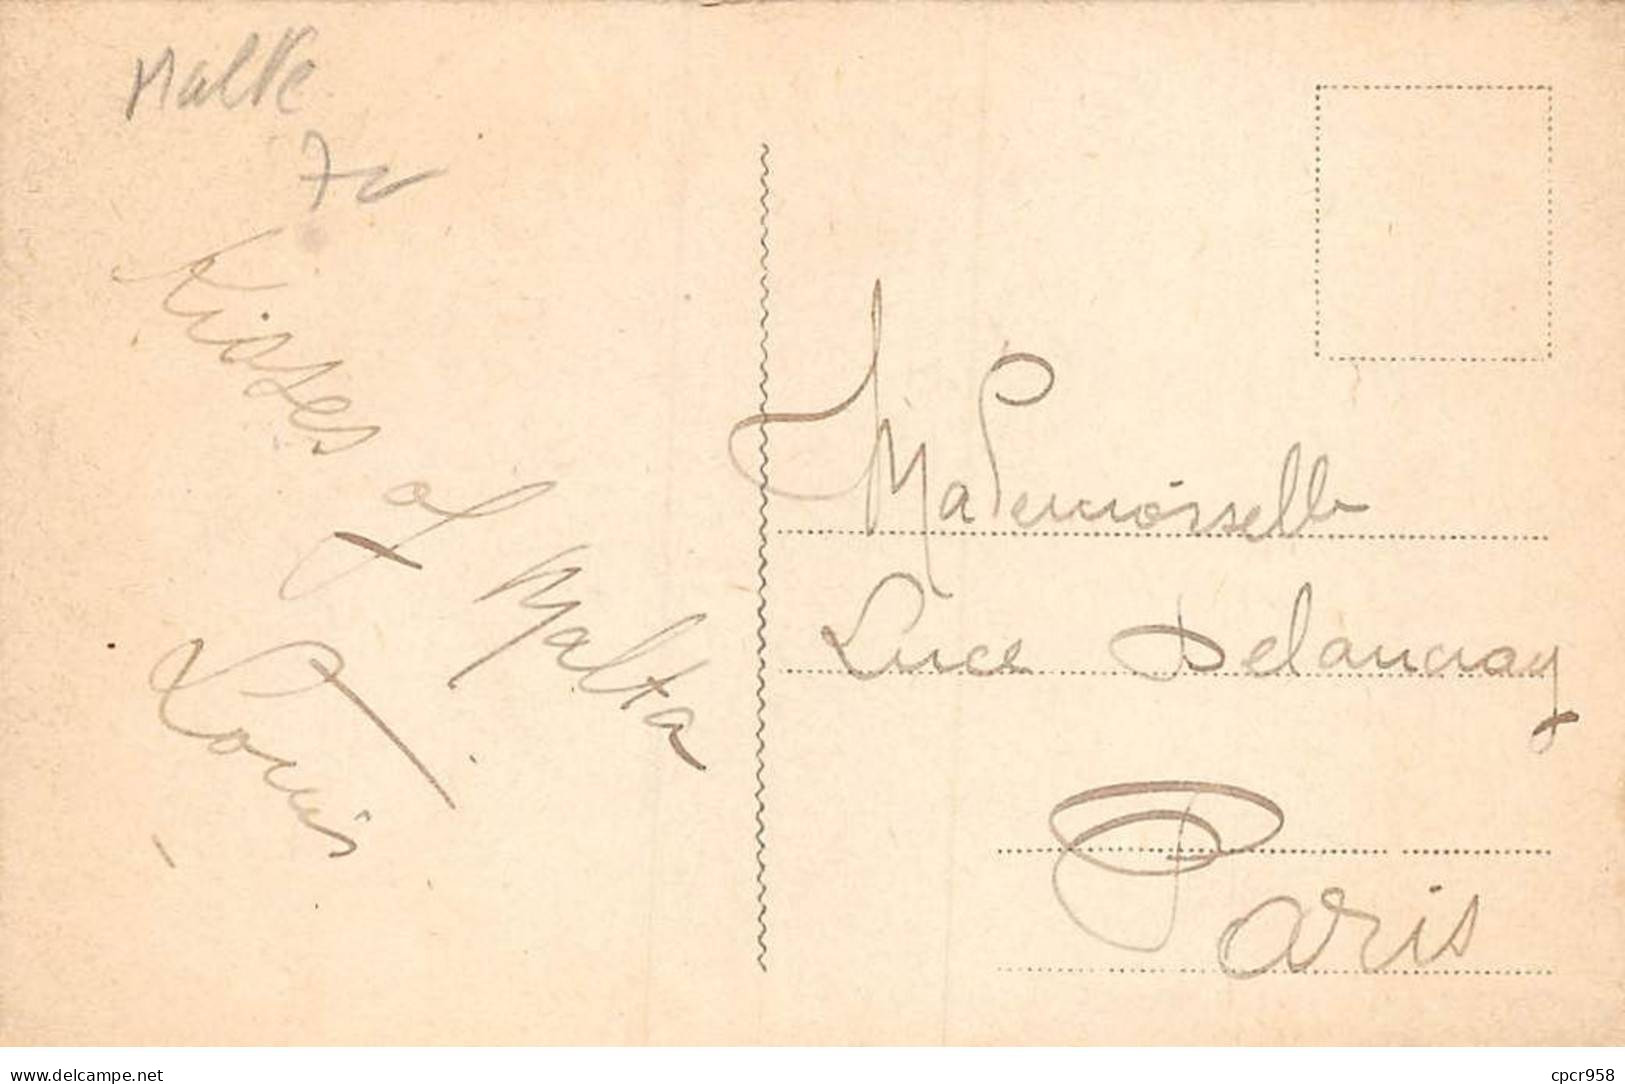 Malte
70
Kisses of Malta
Louis
Mademoiselle
Luce Delaunay
Paris
www.delcampe.net
cpcr958